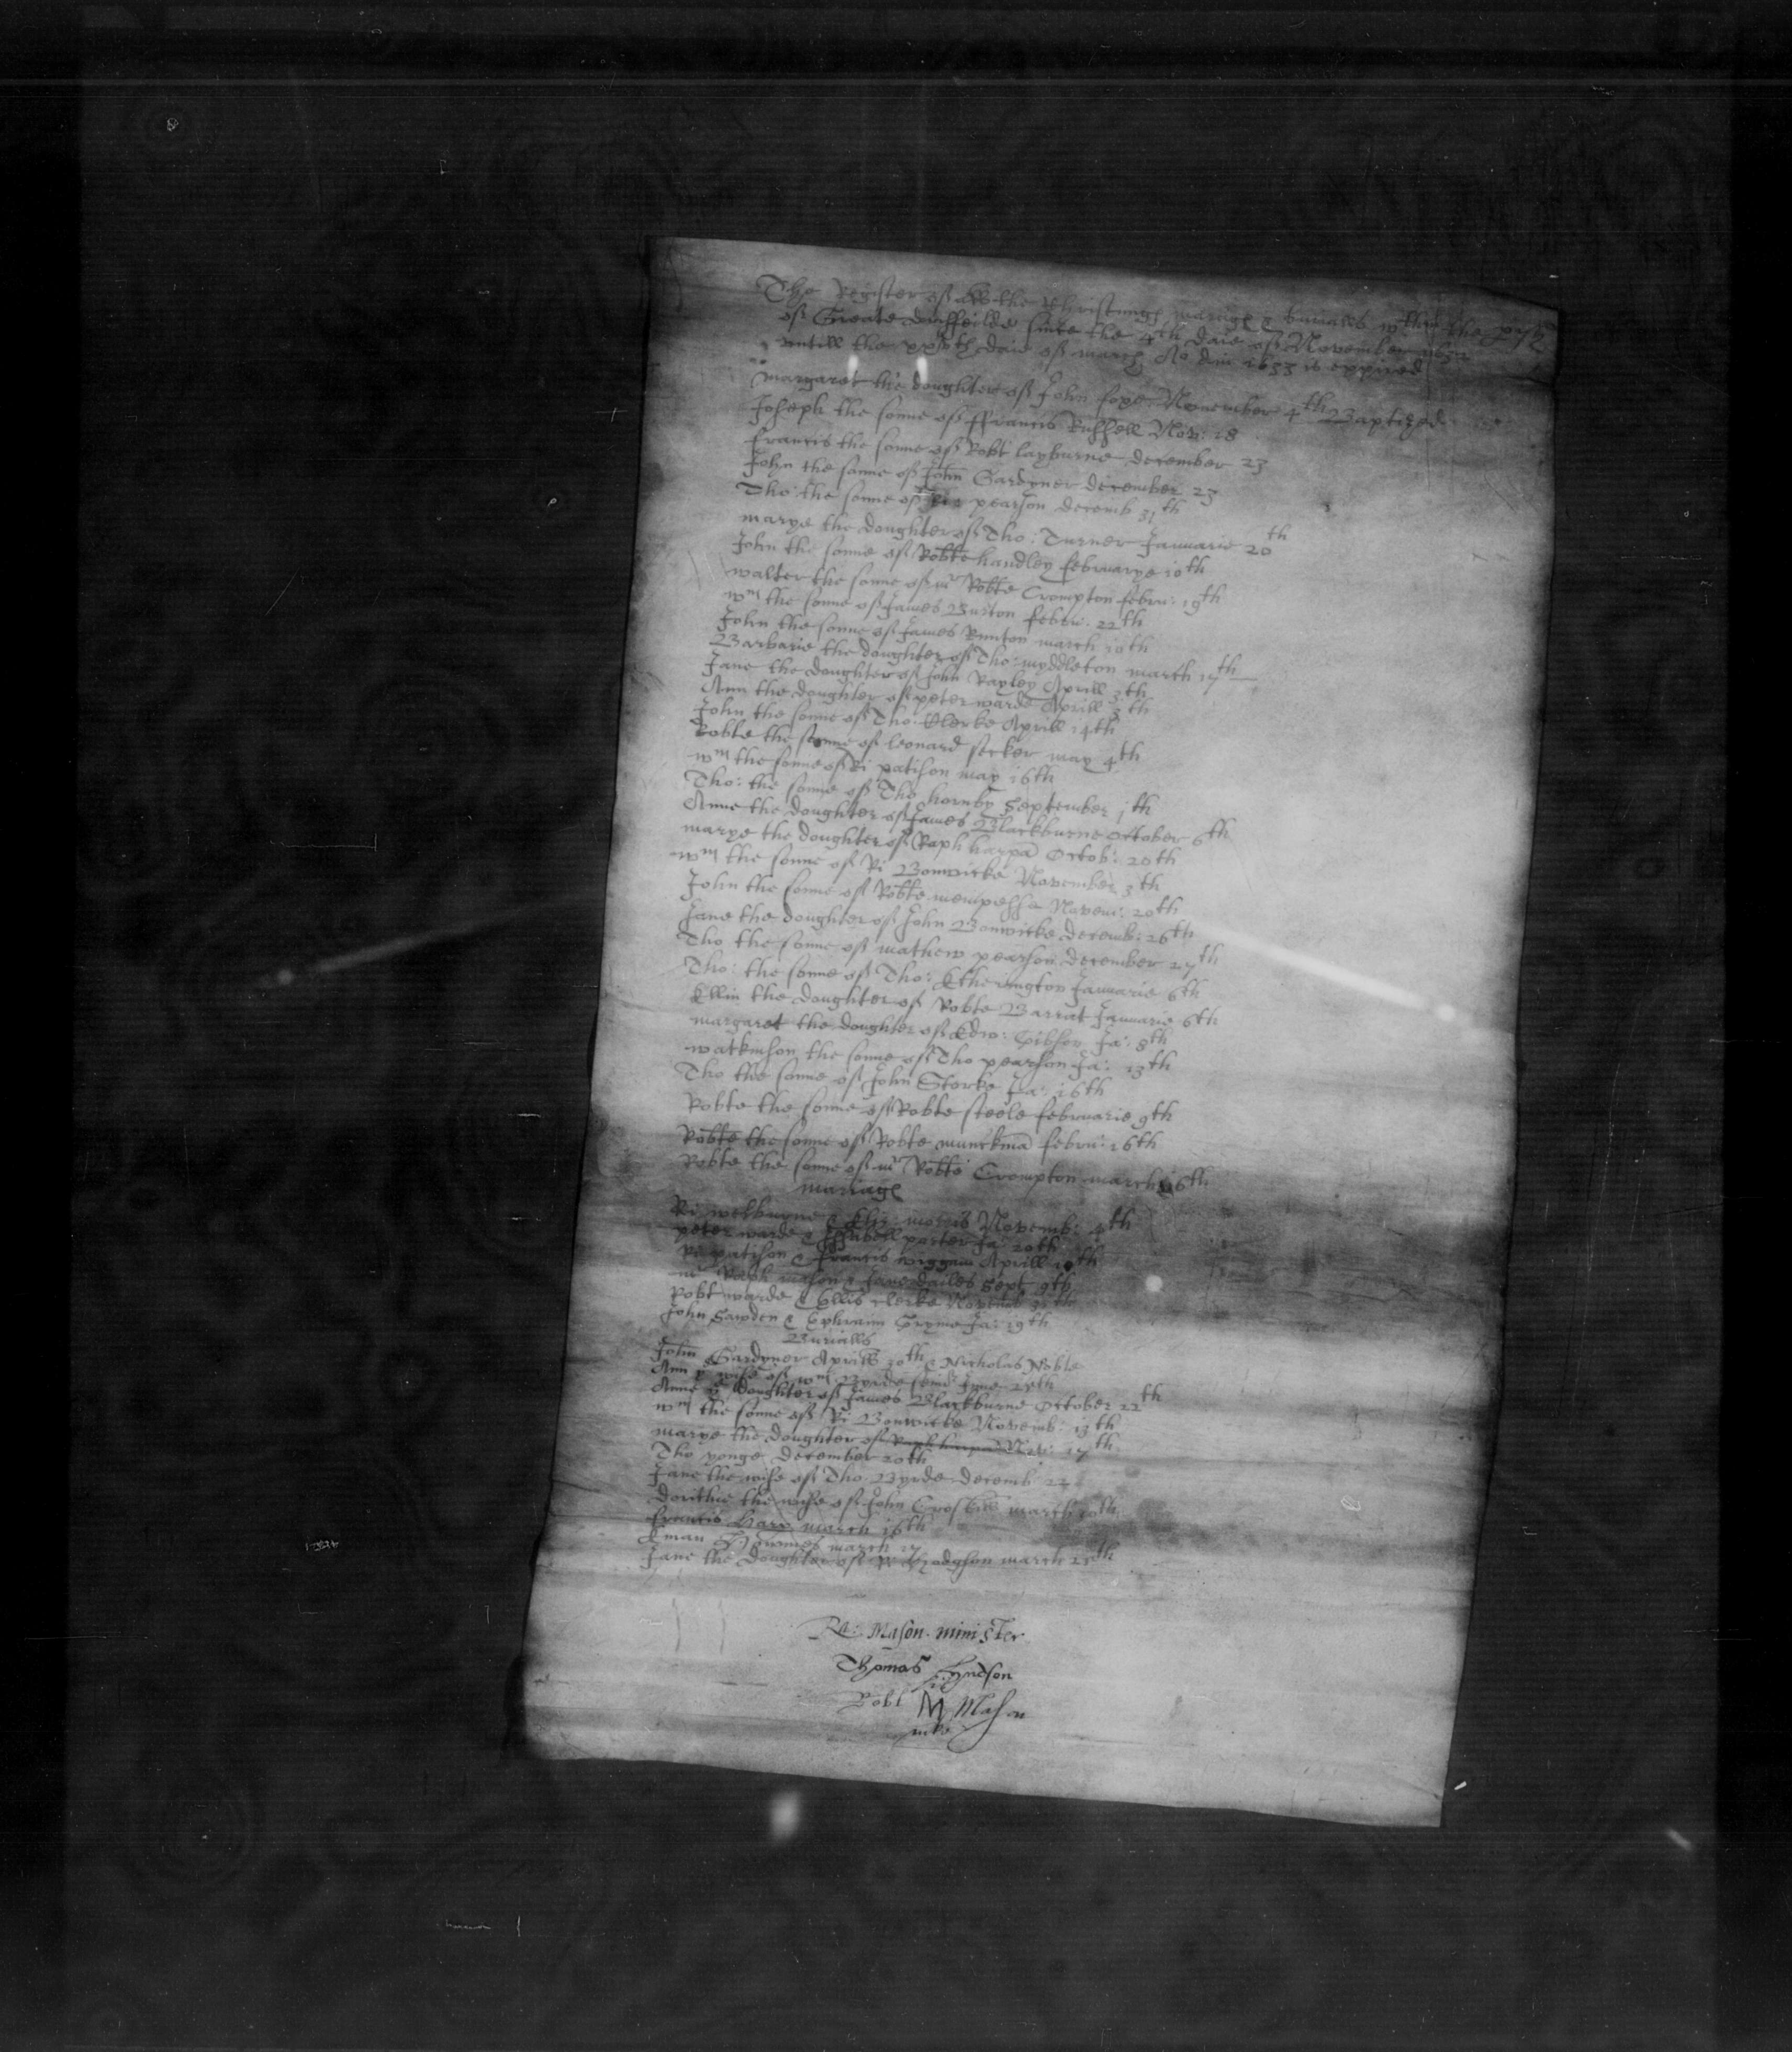 The Register of all the Christnings mariag & burialls wthin the pish
of Greate driffeilde since the 4th daie of November 1632
untill the xxvth daie of march Ao dni 1633 is expired
Margaret the doughter of John foxe November 4th Baptized
Joseph the sonne of ffrancis Russell Nov: 18
francis the sonne of Robt layburne december 23
John the sonne of John Gardyner december 23
Tho: the sonne of pearson decemb 31th
marye the doughter of Tho: Turner Januarie 20th
John the sonne of Robte handley februarye 10th
walter the sonne of mr Robte Crompton febru: 19th
wm the sonne of James Burton febru: 22th
John the sonne of James Runton march 10th
Barbarie the doughter of Tho: myddleton march 17th
Jane the doughter of John Rayley Aprill 3th
Ann the doughter of peter warde Aprill 3th
John the sonne of Tho: Clerke Aprill 14th
Robte the sonne of leonard secker may 4th
wm the sonne of Ri patison may 16th
Tho: the sonne of Tho hornby September 1th
Anne the doughter of James Blackburne October 6th
marye the doughter of Raph harpā Octob: 20th
wm the sonne of Ri Bonwicke November 3th
John the sonne of Robte Novem: 20th
Jane the doughter of John Bonwicke decemb: 26th
Tho the sonne of mathew pearson december 27th
Tho: the sonne of Tho: Etherington Januarie 6th
Ellin the doughter of Robte Barrat Januarie 6th
margaret the doughter of Edw: Gibson Ja: 8th
watkinson the sonne of Tho pearson Ja: 13th
Tho the sonne of John Storke Ja: 16th
Robte the sonne of Robte steele februarie 9th
Robte the sonne of Robte munckmā febru: 16th
Robte the sonne of mr Robte Crompton march 16th
mariag
Ri welburne & Eliz: morris Novemb: 4th
peter warde & Issabell porter Ja: 20th
Ri patison & francis wiggam Aprill
mr Raph mason & Jane dailes Sept 9th
Robt warde & Ellis clerke Novemb
John Sawden & Ja: 19th
Burialls
John Gardyner Aprill 30th & Nicholas Noble
Ann ye wife of wm Byrde June
Anne ye doughter of James Blackburne October 22th
wm the sonne of Ri Bonwicke Novemb: 13th
marye the doughter of Raph harpā Nov: 17th
Tho yonge december 20th
Jane the wife of Tho Byrde decemb 22
dorithie the wife of John march 10th
francis march 16th
march 17
Jane the doughter of Ri Hodgson march 21th
Ra: Mason. minister
Thomas Hyndson
Robt M Mason
mke